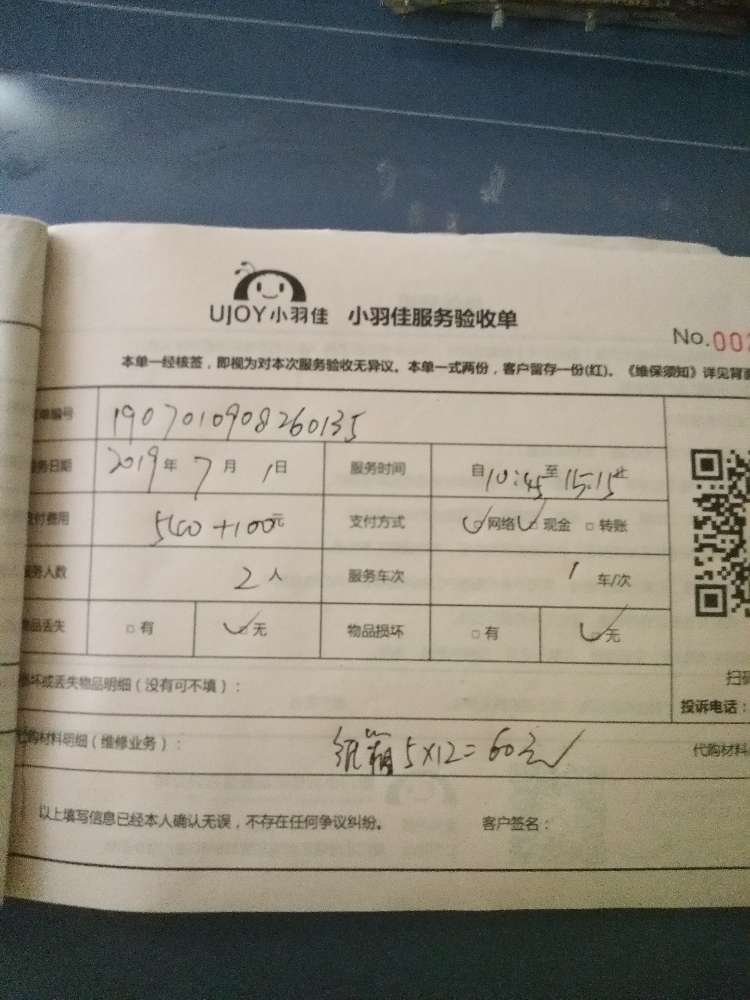 UJOY小羽佳 小羽佳服务验收单
No.002
本单一经核签，即视为对本次服务验收无异议。本单一式两份，客户留存一份(红)。《维保须知》详见背面
单编号 1907010908260135
务日期 2019年7月1日 服务时间 自10:45至15:15止
付费用 500+100元 支付方式 网络 现金 □ 转账
务人数 2人 服务车次 1车/次
品丢失 □ 有 无 物品损坏 □ 有 无
坏或丢失物品明细（没有可不填）：
扫码
投诉电话：
购材料明细（维修业务）： 纸箱5×12=60元
代购材料
以上填写信息已经本人确认无误，不存在任何争议纠纷。 客户签名：